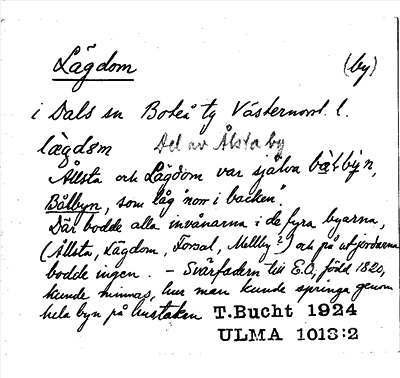 Lägdom (by)
i Dals sn Boteå tg Västernorrl. l.
lägdøm Del av Ålsta by
Ållsta och Lägdom var själva bàl·býn,
Bålbyn, som låg "norr i backen".
Där bodde alla invånarna i de fyra byarna,
(Ållsta, Lägdom, Törsal, Mellby?) och på utjordarna
bodde ingen. – Svärfadern till E.O., född 1820,
kunde minnas, hur man kunde springa genom
hela byn på hustaken T.Bucht 1924
ULMA 1013:2